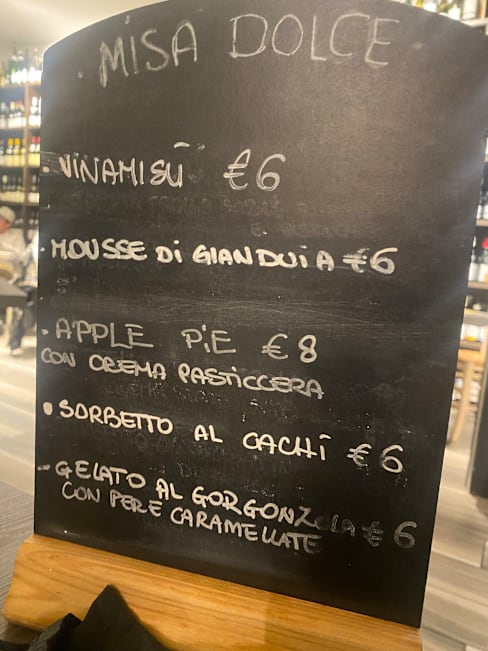 MISA DOLCE
• VINAMISÙ €6
• MOUSSE Di GIANDUiA €6
• APPLE PiE €8
CON CREMA PASTICCERA
• SORBETTO AL CACHI €6
- GELATO AL GORGONZOLA €6
CON PERE CARAMELLATE